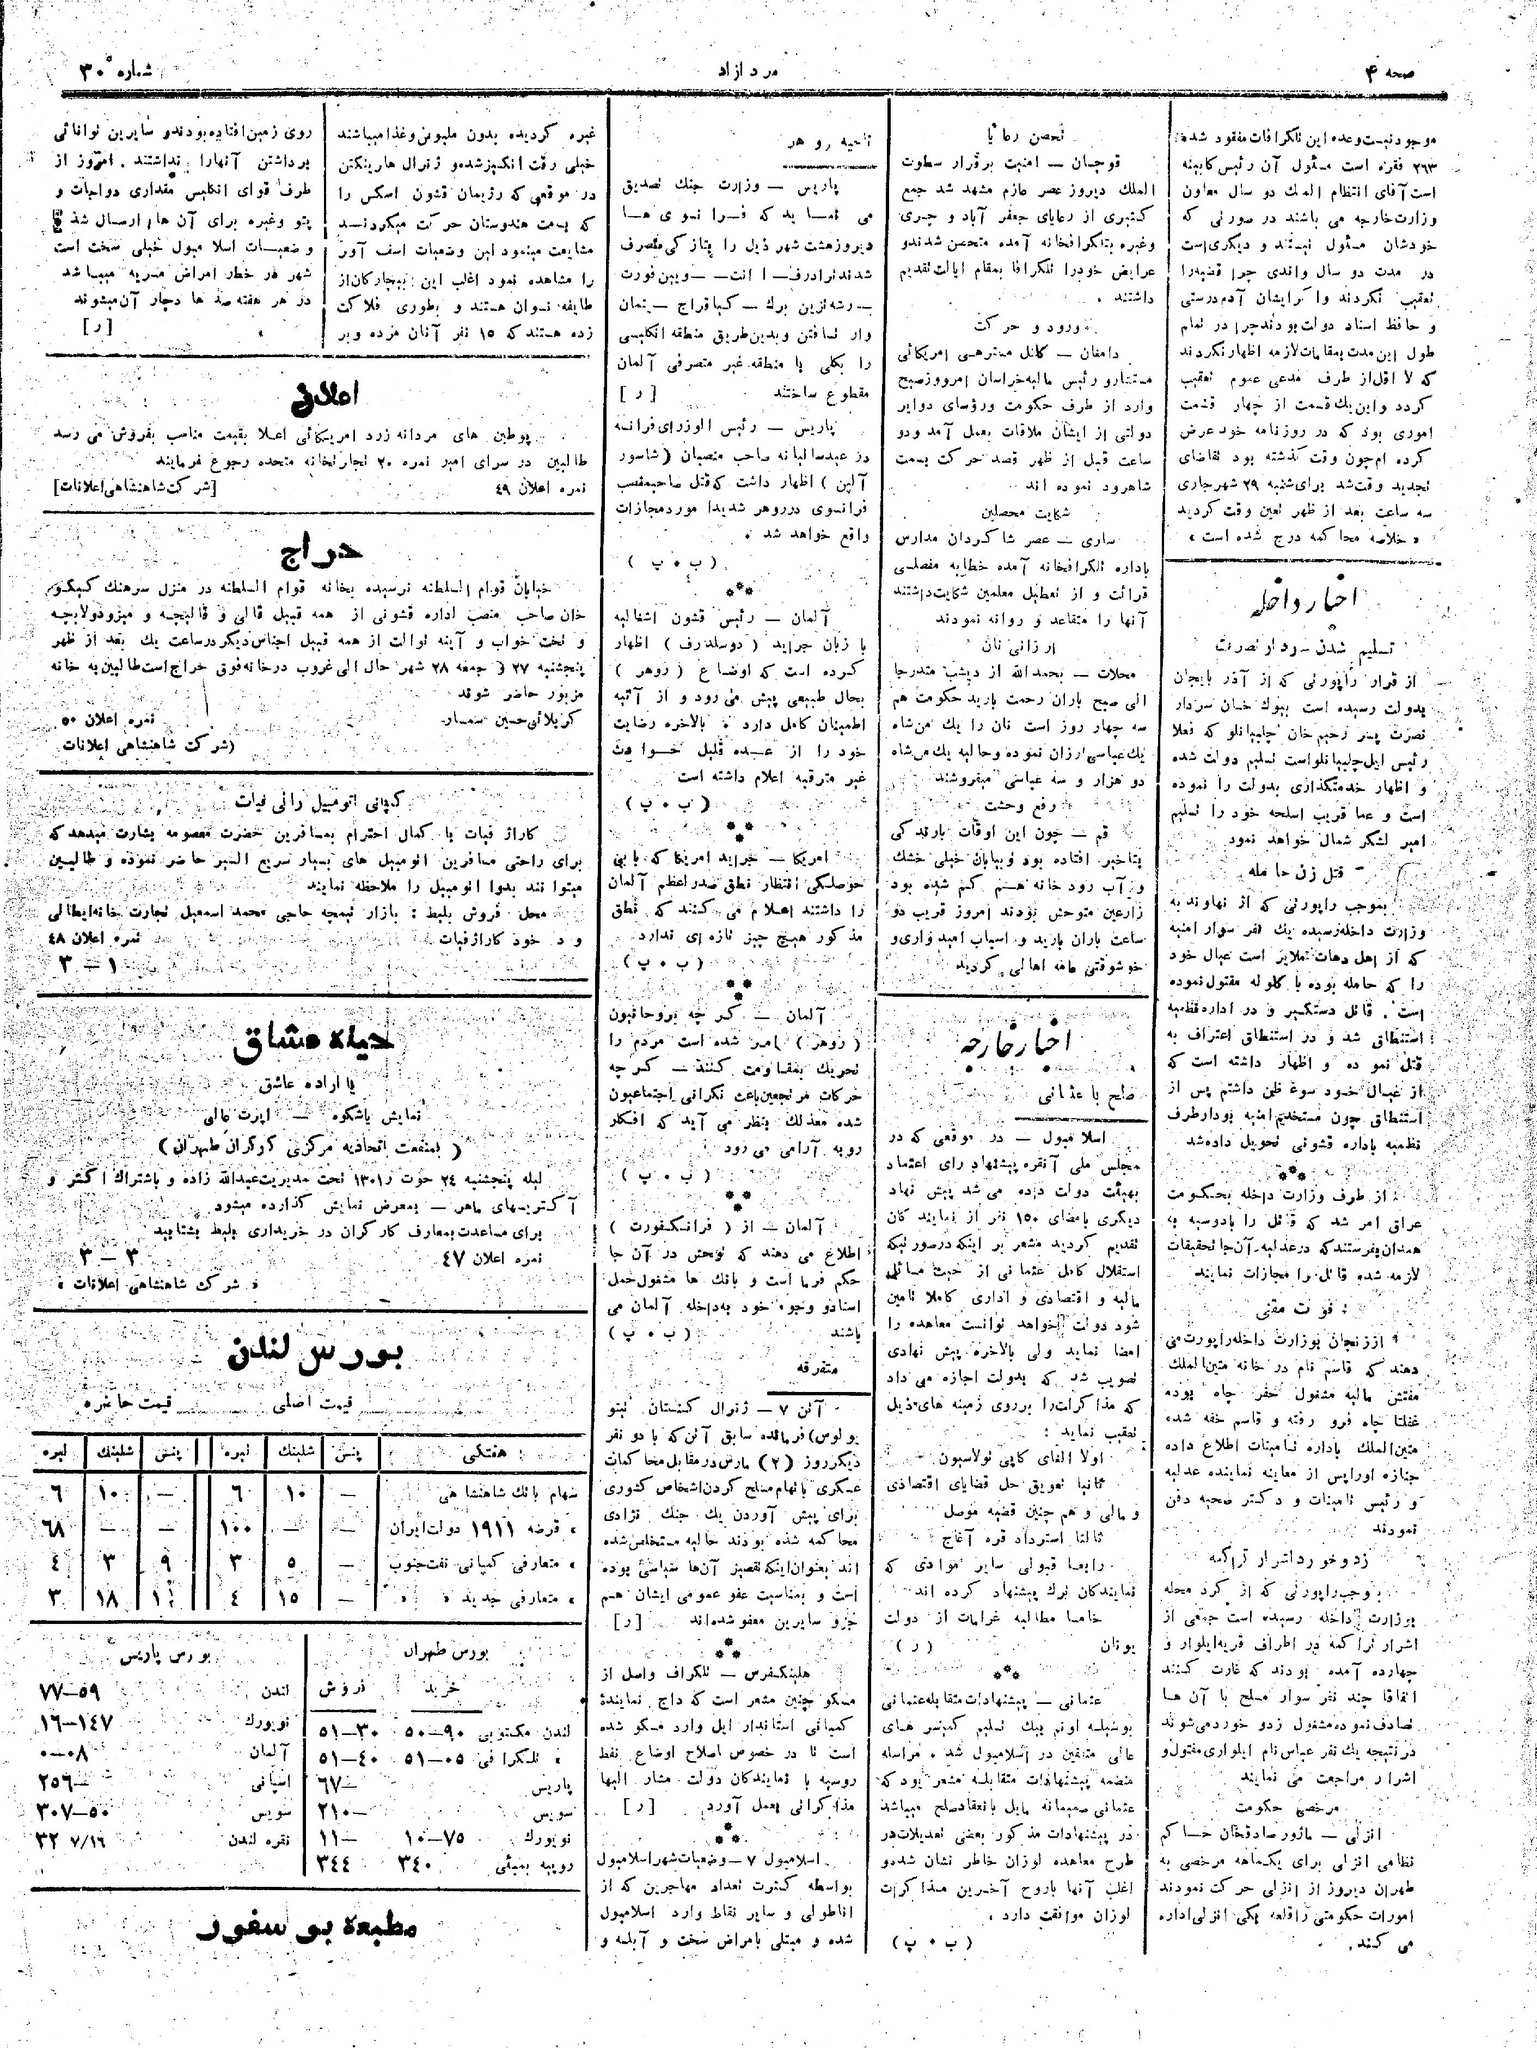 صفحه ۴
مرد آزاد
شماره ۳۰
موجود نیست وعده این تلگرافات مفقود شده
۲۶۳ فقره است مسئول آن رئیس کابینه
است آقای انتظام الملك دو سال معاون
وزارت خارجه می باشند در صورتی که
خودشان مسئول نیستند و دیگری است
در مدت دو سال واندی چرا قضیه را
تعقیب نکردند واگر ایشان آدم درستی
و حافظ اسناد دولت بودند چرا در تمام
طول این مدت بمقامات لازمه اظهار نکردند
که لا اقل از طرف مدعی عموم تعقیب
گردد واین یك قسمت از چهار قسمت
اموری بود که در روزنامه خود عرض
کرده ام چون وقت گذشته بود تقاضای
تجدید وقت شد برای شنبه ۲۹ شهر جاری
سه ساعت بعد از ظهر تعین وقت گردید
« خلاصه محاکمه درج شده است »
اخبار داخله
تسلیم شدن سردار نصرت
از قرار راپورتی که از آذر بایجان
بدولت رسیده است بیوك خان سردار
نصرت پسر رحیم خان چلیپانلو که فعلا
رئیس ایل چلیپانلواست تسلیم دولت شده
و اظهار خدمتگذاری بدولت را نموده
است و عما قریب اسلحه خود را تسلیم
امیر لشگر شمال خواهد نمود
قتل زن حامله
بموجب راپورتی که از نهاوند به
وزارت داخله رسیده یك نفر سوار امنیه
که از اهل دهات ملایر است عیال خود
را که حامله بوده با گلوله مقتول نموده
است. قاتل دستگیر و در اداره نظمیه
استنطاق شد و در استنطاق اعتراف به
قتل نموده و اظهار داشته است که
از عیال خود سوء ظن داشتم پس از
استنطاق چون مستخدم امنیه بود از طرف
نظمیه باداره قشونی تحویل داده شد
از طرف وزارت داخله بحکومت
عراق امر شد که قاتل را بادوسیه به
همدان بفرستند که در عدلیه آن جا تحقیقات
لازمه شده قاتل را مجازات نمایند
فوت مقنی
از زنجان بوزارت داخله راپورت می
دهند که قاسم نام در خانه متین الملك
مفتش مالیه مشغول حفر چاه بوده
غفلتا چاه فرو رفته و قاسم خفه شده
متین الملك باداره تامینات اطلاع داده
جنازه اوراپس از معاینه نماینده عدلیه
و رئیس تامینات و دکتر صحیه دفن
نمودند
زدوخورد اشرار تراکمه
بموجب راپورتی که از کرد محله
بوزارت داخله رسیده است جمعی از
اشرار تراکمه در اطراف قریه ایلوار و
چهارده آمده بودند که غارت کنند
اتفاقا چند نفر سوار مسلح با آن ها
تصادف نموده مشغول زدو خورد می شوند
در نتیجه یك نفر عباس نام ایلواری مقتول و
اشرار مراجعت می نمایند
مرخصی حکومت
انزلی — ماژور صادقخان حاکم
نظامی انزلی برای یکماهه مرخصی به
طهران دیروز از انزلی حرکت نمودند
امورات حکومتی را قلعه بیکی انزلی اداره
می کند.
تحصن رعایا
قوچان — امنیت برقرار سطوت
الملك دیروز عصر عازم مشهد شد جمع
کثیری از رعایای جعفر آباد و چری
وغیره بتلگرافخانه آمده متحصن شدندو
عرایض خودرا تلگرافا بمقام ایالت تقدیم
داشتند.
ورود و حرکت
دامغان — کانل مسترهس امریکائی
مستشار و رئیس مالیه خراسان امروز صبح
وارد از طرف حکومت ورؤسای دوایر
دولتی از ایشان ملاقات بعمل آمد ودو
ساعت قبل از ظهر قصد حرکت بسمت
شاهرود نموده اند
شکایت محصلین
ساری — عصر شاگردان مدارس
باداره تلگرافخانه آمده خطابه مفصلی
قرائت و از تعطیل معلمین شکایت داشتند
آنها را متقاعد و روانه نمودند
ارزانی نان
محلات — بحمدالله از دیشب متدرجا
الی صبح باران رحمت بارید حکومت هم
سه چهار روز است نان را یك من شاه
یك عباسی ارزان نموده وحالیه یك من شاه
دو هزار و سه عباسی میفروشند
رفع وحشت
قم — چون این اوقات بارندگی
بتاخیر افتاده بود وبیابان خیلی خشك
و آب رود خانه هم کم شده بود
زارعین متوحش بودند امروز قریب دو
ساعت باران بارید و اسباب امیدواری و
خوشوقتی عامه اهالی گردید
اخبار خارجه
صلح با عثمانی
اسلامبول — در موقعی که در
مجلس ملی آنقره پیشنهاد رای اعتماد
بهیئت دولت داده می شد پیش نهاد
دیگری بامضای ۱۵۰ نفر از نمایندگان
تقدیم گردید مشعر بر اینکه در صورتیکه
استقلال کامل عثمانی از حیث مسائل
مالیه و اقتصادی و اداری کاملا تامین
شود دولت خواهد توانست معاهده را
امضا نماید ولی بالاخره پیش نهادی
تصویب شد که بدولت اجازه می داد
که مذاکرات را برروی زمینه های ذیل
تعقیب نماید:
اولا الغای کاپی تولاسیون
ثانیا تعویق حل قضایای اقتصادی
و مالی و هم چنین قضیه موصل
ثالثا استرداد قره آغاج
رابعا قبولی سایر موادی که
نمایندگان ترك پیشنهاد کرده اند
خامسا مطالبه غرامات از دولت
یونان (ر)
عثمانی — پیشنهادات متقابله عثمانی
بوسیله اونم بیك تسلیم کمیسر های
عالی متفقین در اسلامبول شد. مراسله
منضمه پیشنهادات متقابله مشعر بود که
عثمانی صمیمانه مایل بانعقاد صلح میباشد
در پیشنهادات مذکور بعضی تعدیلات در
طرح معاهده لوزان خاطر نشان شده و
اغلب آنها باروح آخرین مذاکرات
لوزان موافقت دارد.
(ب ۰ پ)
ناحیه روهر
پاریس — وزارت جنك تصدیق
می نماید که فرانسوی ها
دیروز هشت شهر ذیل را بتازگی متصرف
را بکلی با منطقه غیر متصرفی آلمان
مقطوع ساختند [ر]
پاریس — رئیس الوزرای فرانسه
در عید سالیانه صاحب منصبان (شاسور
آلپن) اظهار داشت که قتل صاحبمنصب
فرانسوی در روهر شدیدا مورد مجازات
واقع خواهد شد.
(ب ۰ پ)
آلمان — رئیس قشون اشغالیه
با زبان جراید (دوسلدرف) اظهار
کرده است که اوضاع (روهر)
بحال طبیعی پیش می رود و از آتیه
اطمینان کامل دارد. بالاخره رضایت
خود را از عده قلیل حوادث
غیر مترقبه اعلام داشته است
(ب ۰ پ)
امریکا — جراید امریکا که با بی
حوصلگی انتظار نطق صدراعظم آلمان
را داشتند اعلام می کنند که نطق
مذکور هیچ چیز تازه ای ندارد
(ب ۰ پ)
آلمان — گر چه بروحانیون
(روهر) امر شده است مردم را
تحریك بمقاومت کنند — گرچه
حرکات مرتجعین باعث نگرانی اجتماعیون
شده معذلك بنظر می آید که افکار
روبه آرامی می رود
(ب ۰ پ)
آلمان — از (فرانکفورت)
اطلاع می دهند که توحش در آن جا
حکم فرما است و بانك ها مشغول حمل
اسناد و وجوه خود به داخله آلمان می
باشند (ب ۰ پ)
متفرقه
آتن ۷ — ژنرال کنستان تینو
پولوس) فرمانده سابق آتن که با دو نفر
دیگر روز (۲) مارس در مقابل محاکمات
عسکری باتهام مسلح کردن اشخاص کشوری
برای پیش آوردن یك جنك نژادی
محاکمه شده بودند حالیه مستخلص شده
اند بعنوان اینکه تقصیر آن ها سیاسی بوده
است و بمناسبت عفو عمومی ایشان هم
جزو سایرین معفو شده اند [ر]
هلینکفرس — تلگراف واصل از
مسکو چنین مشعر است که داج نماینده
کمپانی استاندار ایل وارد مسکو شده
است تا در خصوص اصلاح اوضاع نفط
روسیه با نمایندگان دولت مشار الیها
مذاکراتی بعمل آورد [ر]
اسلامبول ۷ — وضعیات شهر اسلامبول
بواسطه کثرت تعداد مهاجرین که از
اناطولی و سایر نقاط وارد اسلامبول
شده و مبتلی بامراض سخت و آبله و
غیره گردیده بدون ملبوس وغذا میباشند
خیلی رقت انگیز شده و ژنرال هارینکتن
در موقعی که رژیمان قشون اسکس را
که بسمت هندوستان حرکت میکردند
مشایعت مینمود این وضعیات اسف آور
را مشاهده نمود اغلب این بیچارگان از
طایفه نسوان هستند و بطوری فلاکت
زده هستند که ۱۵ نفر آنان مرده و بر
روی زمین افتاده بودند و سایرین توانائی
برداشتن آنهارا نداشتند. امروز از
طرف قوای انگلیس مقداری دواجات و
پتو وغیره برای آن ها ارسال شد
وضعیات اسلامبول خیلی سخت است
شهر در خطر امراض مسریه میباشد
در هر هفته صد ها دچار آن میشوند
[ر]
اعلان
پوطین های مردانه زرد امریکائی اعلا بقیمت مناسب بفروش می رسد
طالبین در سرای امیر نمره ۲۰ تجارتخانه متحده رجوع فرمایند
نمره اعلان ۴۹ [شرکت شاهنشاهی اعلانات]
حراج
خیابان قوام السلطنه نرسیده بخانه قوام السلطنه در منزل سرهنك
خان صاحب منصب اداره قشونی از همه قبیل قالی و قالیچه و میزودولابچه
و تخت خواب و آینه توالت از همه قبیل اجناس دیگر در ساعت یك بعد از ظهر
پنجشنبه ۲۷ و جمعه ۲۸ شهر حال الی غروب درخانه فوق حراج است طالبین به خانه
مزبور حاضر شوند
کربلائی حسین سمسار نمره اعلان ۵۰
(شرکت شاهنشاهی اعلانات
کمپانی اتومبیل رانی فیات
گاراژ فیات با کمال احترام بمسافرین حضرت معصومه بشارت میدهد که
برای راحتی مسافرین اتومبیل های بسیار سریع السیر حاضر نموده و طالبین
میتوانند بدوا اتومبیل را ملاحظه نمایند
محل فروش بلیط: بازار تیمچه حاجی محمد اسمعیل تجارت خانه ایطالی
و در خود گاراژ فیات نمره اعلان ۴۸
۱ — ۳
حیله عشاق
یا اراده عاشق
نمایش باشکوه — اپرت عالی
(بمنفعت اتحادیه مرکزی کارگران طهران)
لیله پنجشنبه ۲۴ حوت ۱۳۰۱ تحت مدیریت عبدالله زاده و باشتراك اکتر و
آکتریسهای ماهر — بمعرض نمایش گذارده میشود
برای مساعدت بمعارف کارگران در خریداری بلیط بشتابید
نمره اعلان ۴۷ ۳ — ۳
« شرکت شاهنشاهی اعلانات »
بورس لندن
قیمت اصلی قیمت حاضره
هفتگی پنس شلینك لیره پنس شلینك لیره
سهام بانك شاهنشاهی — ۱۰ ۶ — ۱۰ ۶
« قرضه ۱۹۱۱ دولت ایران — — ۱۰۰ — — ۶۸
« متعارفی کمپانی نفت جنوب — ۵ ۳ ۹ ۳ ۴
« متعارفی جدید « « — ۱۵ ۴ ۱۸ ۳
بورس طهران
خرید فروش
لندن مکتوبی ۹۰—۵۰ ۳۰—۵۱
« تلگرافی ۰۵—۵۱ ۴۰—۵۱
پاریس —۶۷
سویس —۲۱۰
نویورك ۷۵—۱۰ —۱۱
روپیه بمبئی ۳۴۰ ۳۴۴
بورس پاریس
لندن ۵۹—۷۷
نویورك ۱۴۷—۱۶
آلمان ۰۸—۰
اسپانی —۲۵۶
سویس ۵۰—۳۰۷
نقره لندن ۷/۱۶ ۳۲
مطبعه بوسفور